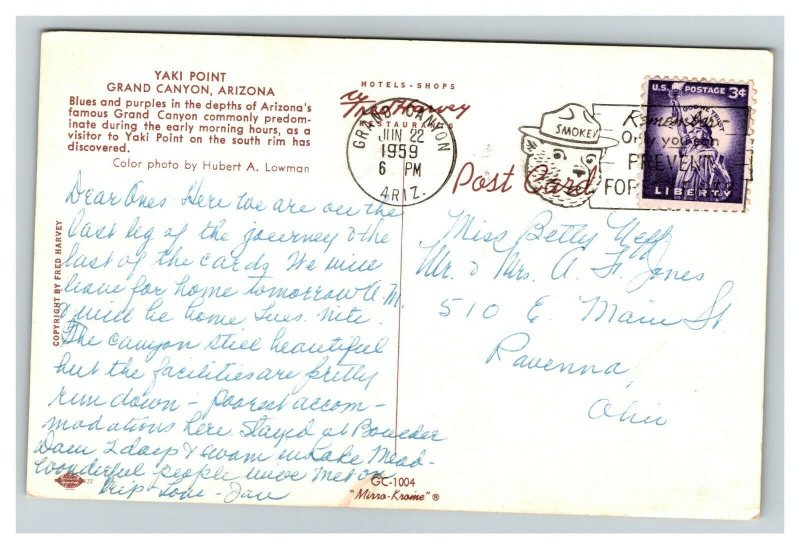 YAKI POINT
GRAND CANYON, ARIZONA
Blues and purples in the depths of Arizona's
famous Grand Canyon commonly predom-
inate during the early morning hours, as a
visitor to Yaki Point on the south rim has
discovered.
Color photo by Hubert A. Lowman
COPYRIGHT BY FRED HARVEY
Dear Ones: Here we are on the
last leg of the journey & the
last of the cards. We will
leave for home tomorrow A.M.
& will be home Tues. nite.
The canyon still beautiful
but the facilities are pretty
run down - poorest accom-
modations here. Stayed at Boulder
Dam 2 days & swam in Lake Mead -
Wonderful people we've met on
trip - Love -
22
HOTELS - SHOPS
Fred Harvey
RESTAURANTS
GRAND CANYON
JUN 22
1959
6 PM
ARIZ.
SMOKEY
Remember
Only you can
PREVENT
FOR
U.S. POSTAGE 3¢
IN GOD WE TRUST
LIBERTY
Post Card
Miss Betty Neff
Mr. & Mrs. A. F. Jones
510 E. Main St
Ravenna,
Ohio
GC-1004
"Mirro-Krome" ®